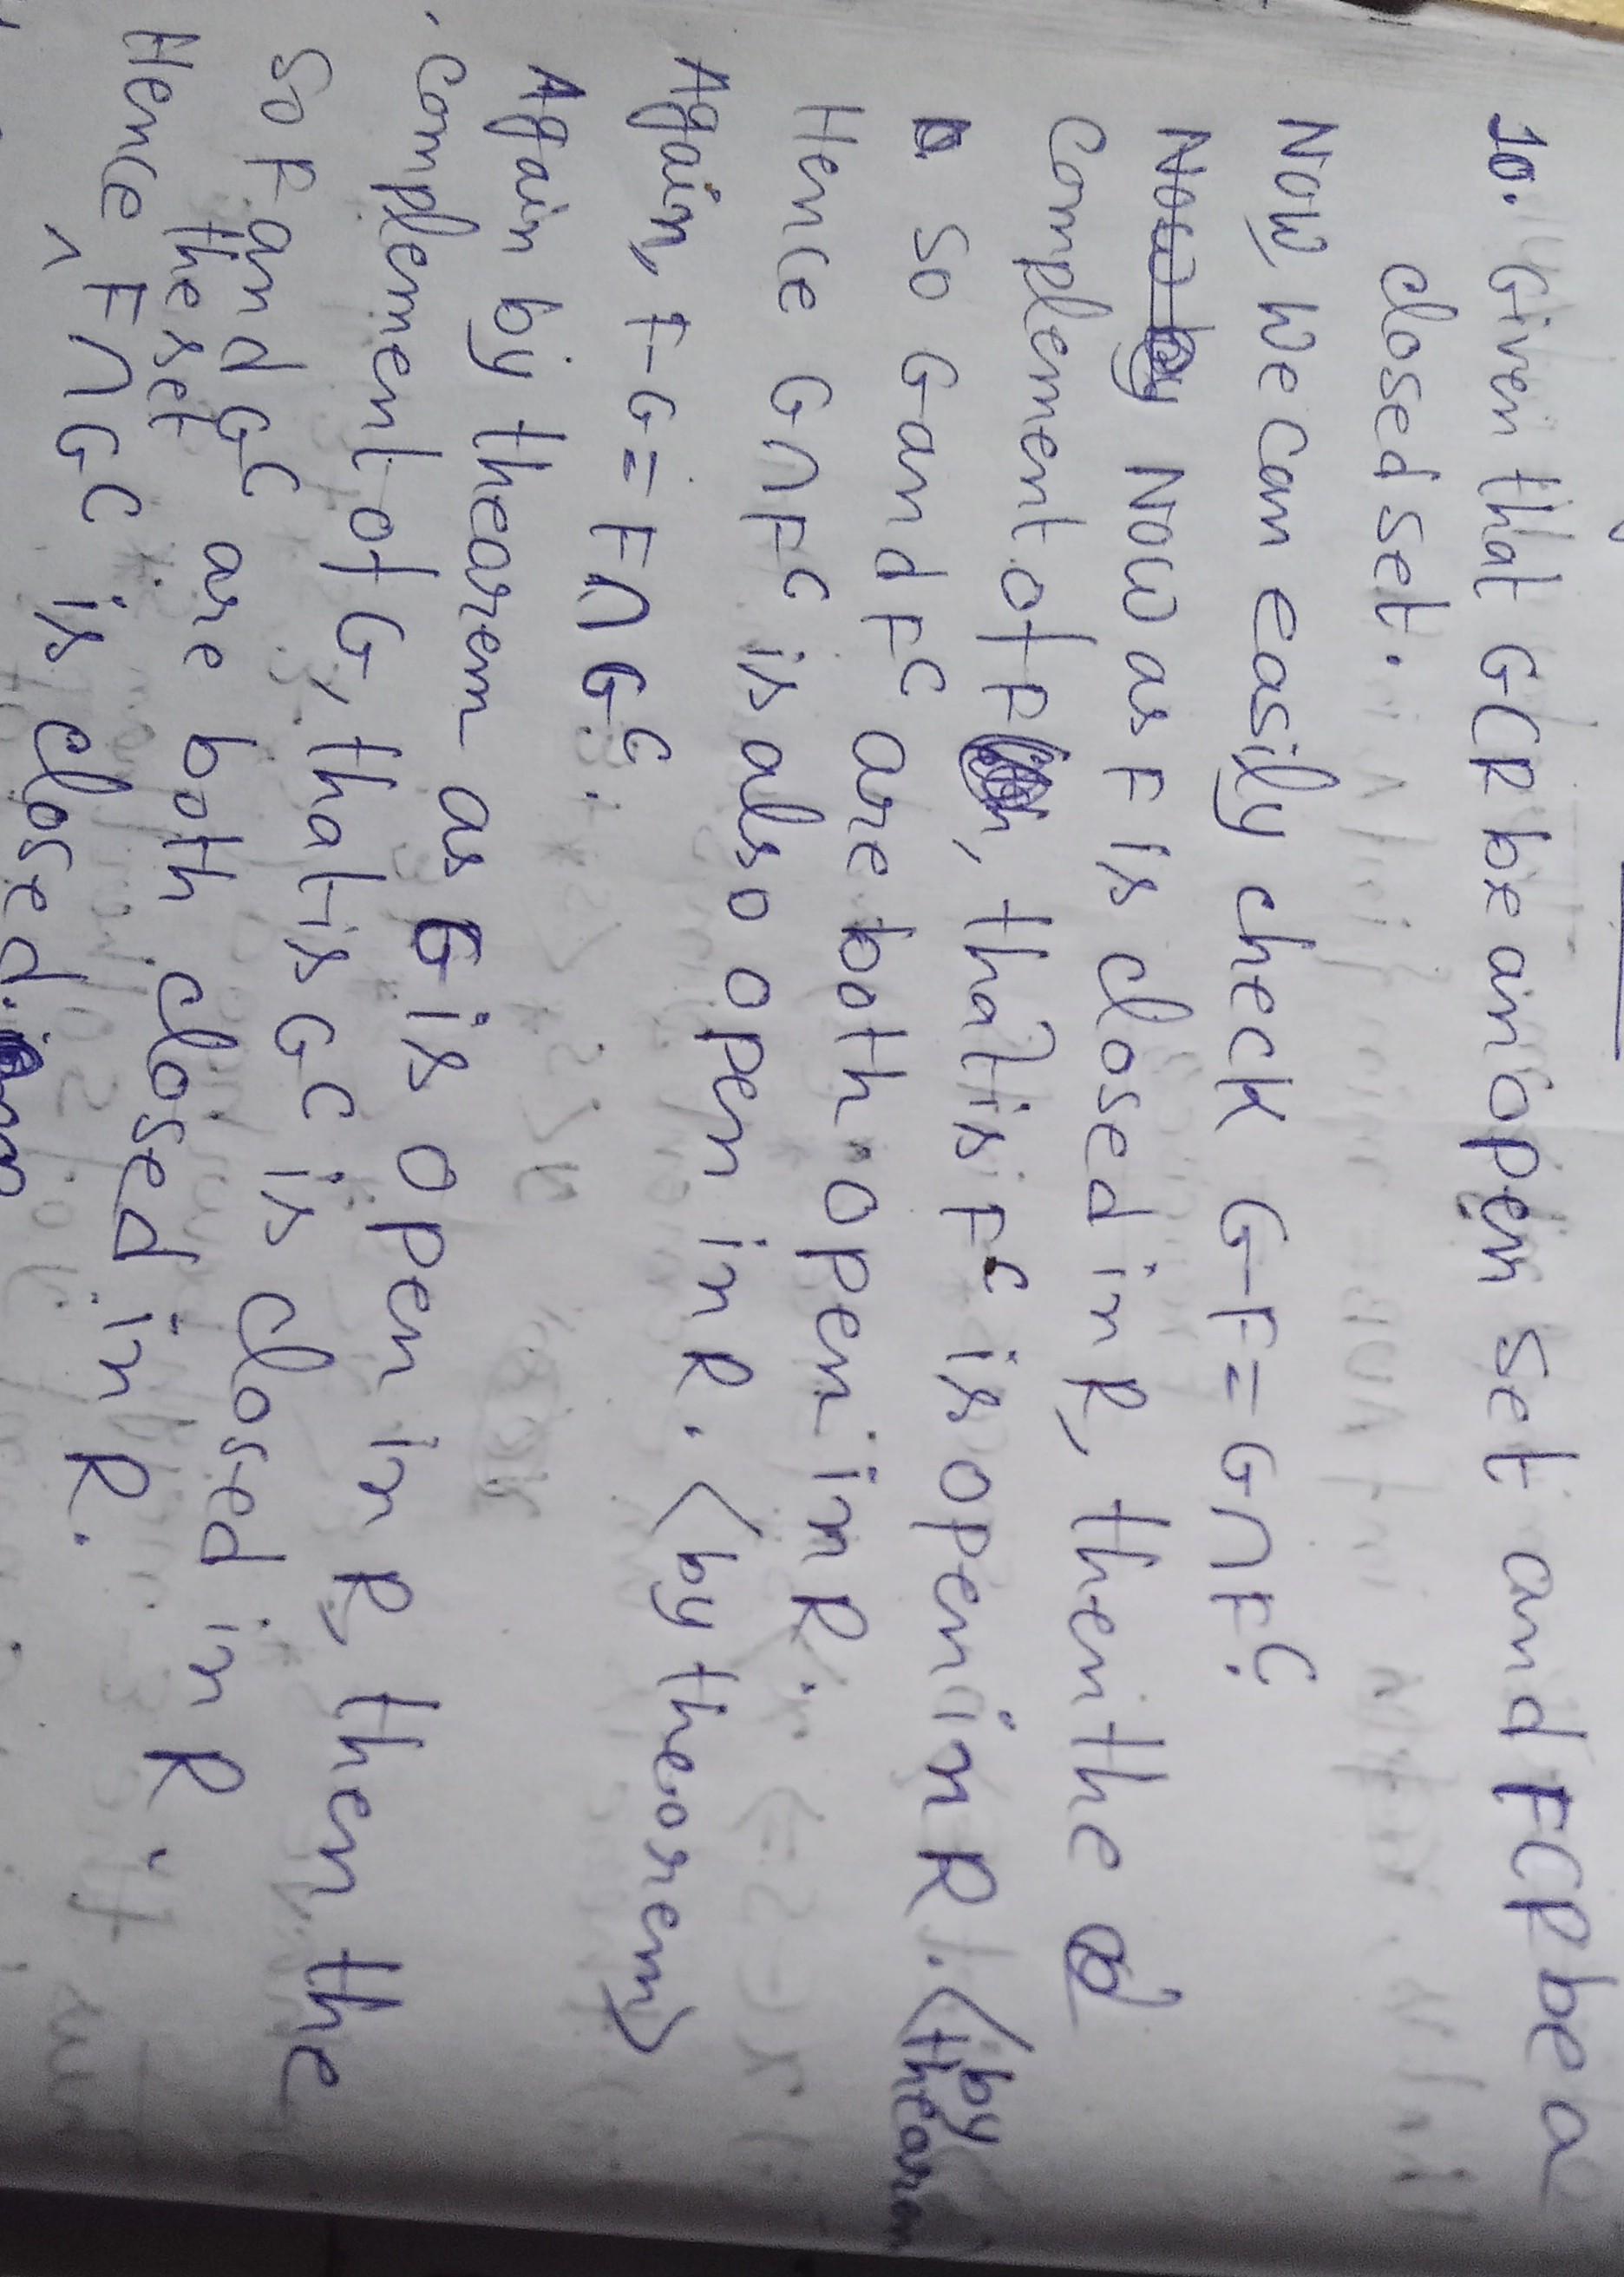 10. Given that G⊂R be an open set and F⊂R be a
closed set.
Now we can easily check G-F = G∩Fᶜ.
Now as F is closed in R, then the
complement of F, that is Fᶜ is open in R. <by theorem
So G and Fᶜ are both open in R.
Hence G∩Fᶜ is also open in R. <by theorem>
Again, F-G = F∩Gᶜ.
Again by theorem as G is open in R, then the
complement of G, that is Gᶜ is closed in R.
So F and Gᶜ are both closed in R.
Hence the set F∩Gᶜ is closed in R.